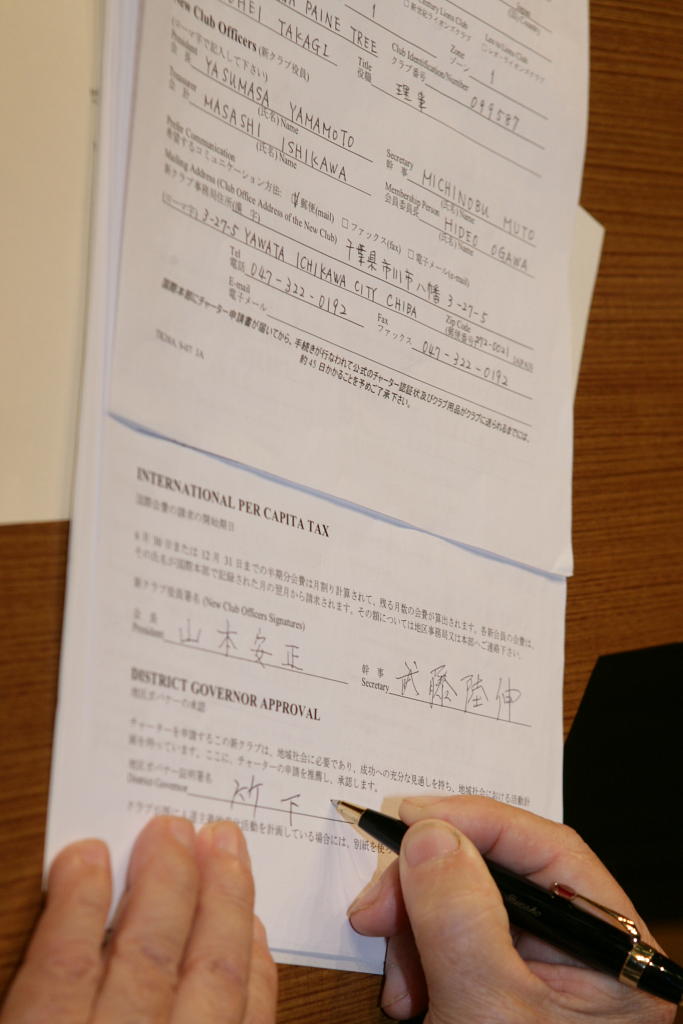 PAINE TREE
TAKAGI
Title
役職
理事
Club Identification/Number
クラブ番号
099587
Zone
ゾーン
1
New Club Officers (新クラブ役員)
(ローマ字で記入して下さい)
President
会 長
YASUMASA YAMAMOTO
(氏名) Name
Secretary
幹 事
MICHINOBU MUTO
(氏名) Name
Treasurer
会 計
MASASHI ISHIKAWA
(氏名) Name
Membership Person
会員委員長
HIDEO OGAWA
(氏名) Name
Prefer Communication
希望するコミュニケーション方法: 郵便(mail) □ファックス(fax) □電子メール(e-mail)
Mailing Address (Club Office Address of the New Club)
千葉県市川市八幡 3-27-5
(ローマ字) 3-27-5 YAWATA ICHIKAWA CITY CHIBA
Zip Code
(郵便番号) 272-0021 JAPAN
Tel
電話 047-322-0192
Fax
ファックス 047-322-0192
E-mail
電子メール
国際本部にチャーター申請書が届いてから、手続きが行なわれて公式のチャーター認証状及びクラブ用品がクラブに送られるまでには、
約45日かかることを予めご了承下さい。
INTERNATIONAL PER CAPITA TAX
国際会費の請求の開始期日
6月30日または12月31日までの半期分会費は月割り計算されて、残る月数の会費が算出されます。各新会員の会費は、
その氏名が国際本部で記録された月の翌月から請求されます。その額については地区事務局又は本部へご連絡下さい。
新クラブ役員署名 (New Club Officers Signatures)
会 長
President 山本安正
幹 事
Secretary 武藤陸伸
DISTRICT GOVERNOR APPROVAL
地区ガバナーの承認
チャーターを申請するこの新クラブは、地域社会に必要であり、成功への充分な見通しを持ち、地域社会における活動計
画を持っています。ここに、チャーターの申請を推薦し、承認します。
地区ガバナー証明署名
District Governor 竹下